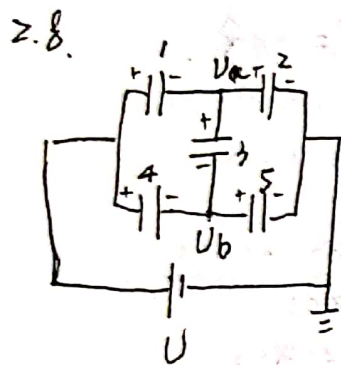 2.8.
1
Ua
2
+ - + -
+
3
-
4
5
+ - + -
Ub
U